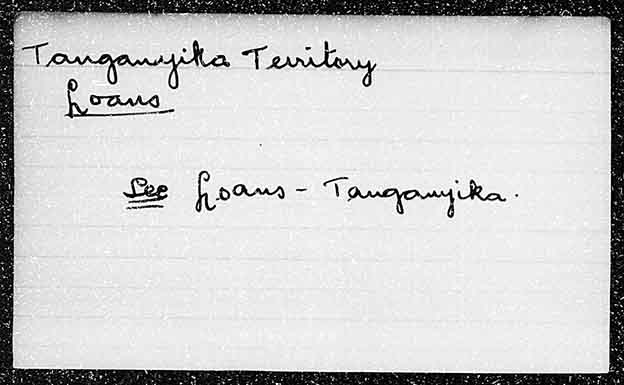 Tanganyika Territory
Loans
See Loans - Tanganyika.